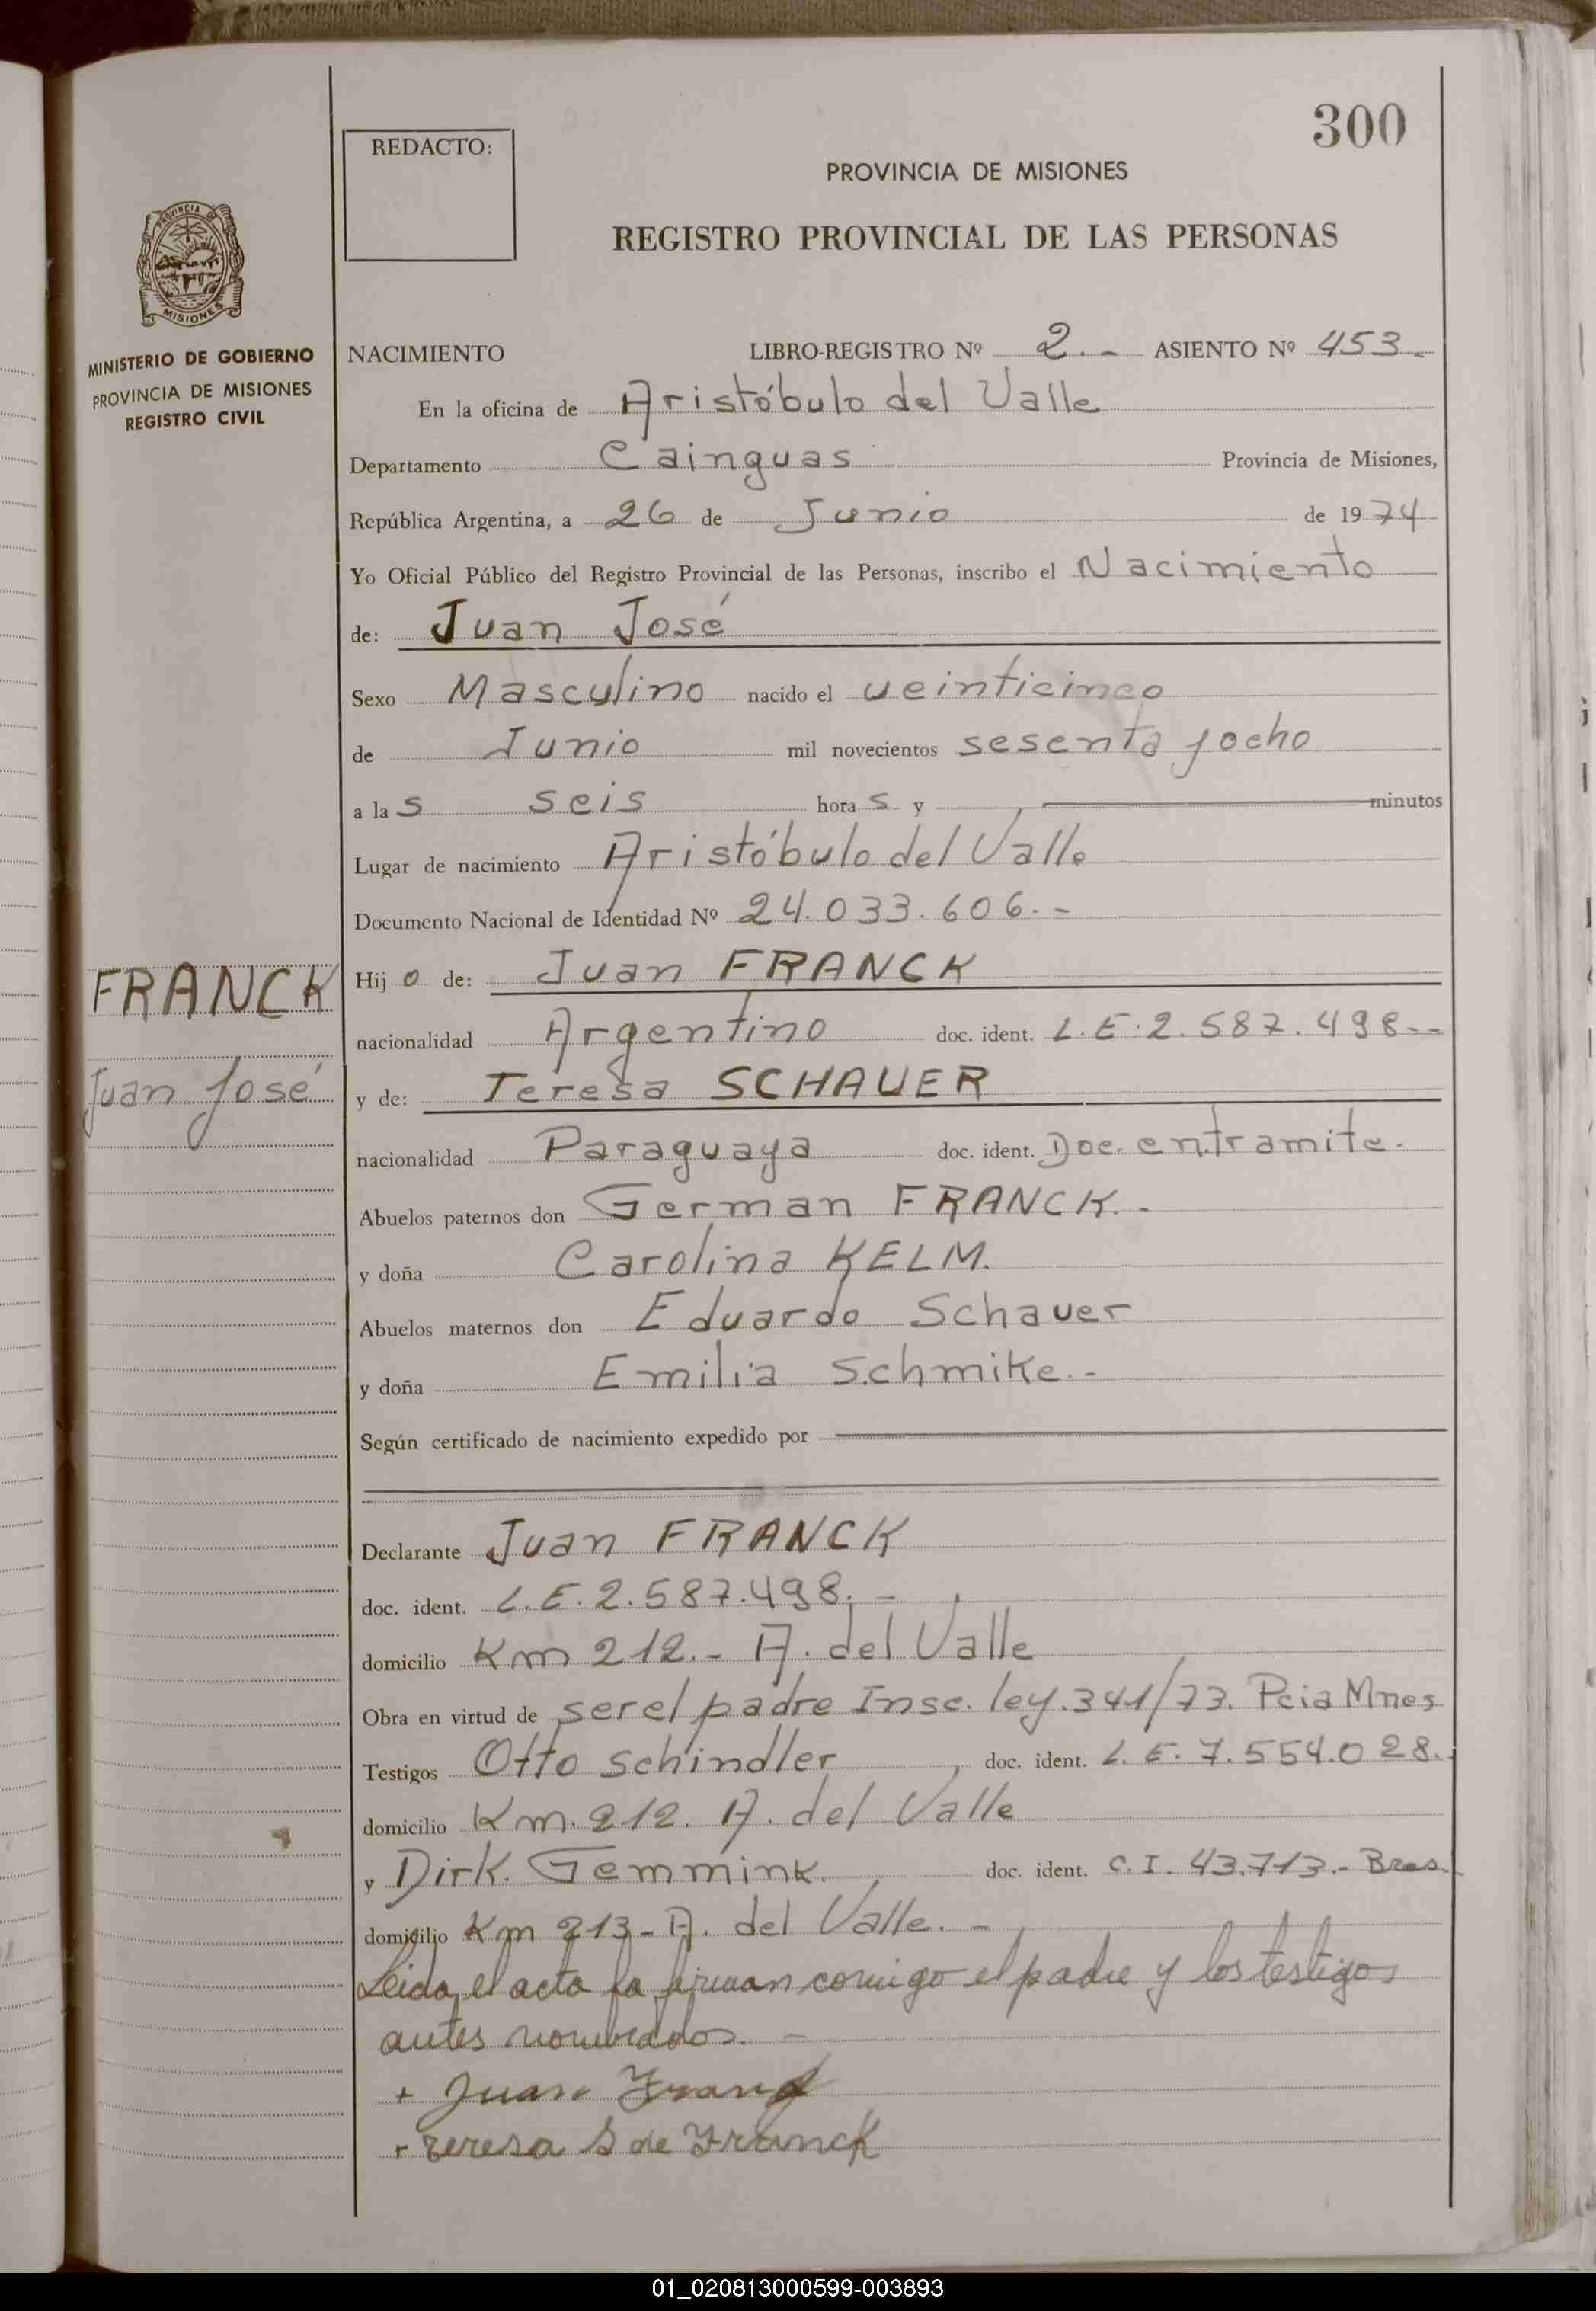 300
REDACTO:
PROVINCIA DE MISIONES
REGISTRO PROVINCIAL DE LAS PERSONAS
PROVINCIA DE
MISIONES
MINISTERIO DE GOBIERNO
PROVINCIA DE MISIONES
REGISTRO CIVIL
NACIMIENTO LIBRO-REGISTRO Nº 2.- ASIENTO Nº 453.
En la oficina de Aristóbulo del Valle
Departamento Cainguas Provincia de Misiones,
República Argentina, a 26 de Junio de 1974
Yo Oficial Público del Registro Provincial de las Personas, inscribo el Nacimiento
de: Juan José
Sexo Masculino nacido el veinticinco
de Junio mil novecientos sesenta y ocho
a las seis horas y minutos
Lugar de nacimiento Aristóbulo del Valle
Documento Nacional de Identidad Nº 24.033.606.-
FRANCK
Hijo de: Juan FRANCK
nacionalidad Argentino doc. ident. L.E.2.587.498--
Juan José
y de: Teresa SCHAUER
nacionalidad Paraguaya doc. ident. Doc. en tramite.
Abuelos paternos don German FRANCK.-
y doña Carolina KELM.
Abuelos maternos don Eduardo Schauer
y doña Emilia Schmike.-
Según certificado de nacimiento expedido por
Declarante Juan FRANCK
doc. ident. L.E.2.587.498.-
domicilio Km 212.- A. del Valle
Obra en virtud de ser el padre Insc. ley.341/73. Pcia Mnes
Testigos Otto Schindler doc. ident. L.E.7.554.028.
domicilio Km.212. A. del Valle
y Dirk. Gemmink. doc. ident. C.I. 43.713.- Bras.
domicilio Km 213-A. del Valle.-
Leida, el acta la firman comigo el padre y los testigos
antes nombrados.-
+ Juan Franck
+ Teresa S de Franck
01_020813000599-003893